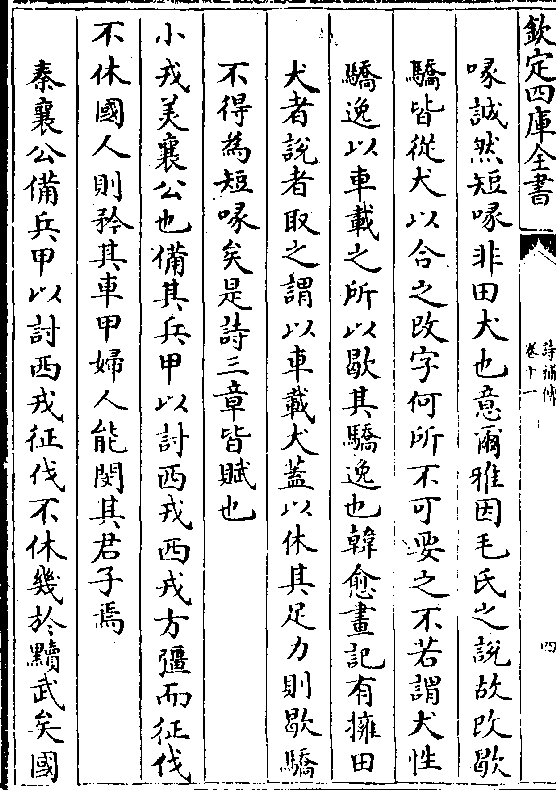 欽定四庫全書
詩補傳
卷十一
四
喙誠然短喙非田犬也意爾雅因毛氏之說故改歇
驕皆從犬以合之改字何所不可要之不若謂犬性
驕逸以車載之所以歇其驕逸也韓愈畫記有擁田
犬者說者取之謂以車載犬蓋以休其足力則歇驕
不得為短喙矣是詩三章皆賦也
小戎美襄公也備其兵甲以討西戎西戎方彊而征伐
不休國人則矜其車甲婦人能閔其君子焉
秦襄公備兵甲以討西戎征伐不休幾於黷武矣國